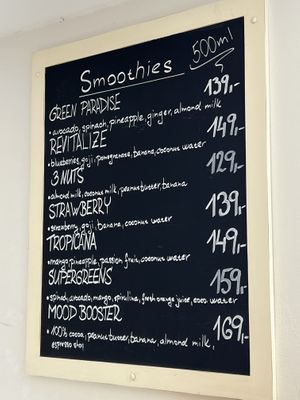 Smoothies 500ml
GREEN PARADISE 139,-
• avocado, spinach, pineapple, ginger, almond milk
REVITALIZE 149,-
• blueberries, goji, pomegranate, banana, coconut water
3 NUTS 129,-
• almond milk, coconut milk, peanut butter, banana
STRAWBERRY 139,-
• strawberry, goji, banana, coconut water
TROPICANA 149,-
• mango, pineapple, passion fruit, coconut water
SUPERGREENS 159,-
• spinach, avocado, mango, spirulina, fresh orange juice, coco water
MOOD BOOSTER 169,-
• 100% cocoa, peanut butter, banana, almond milk,
espresso shot